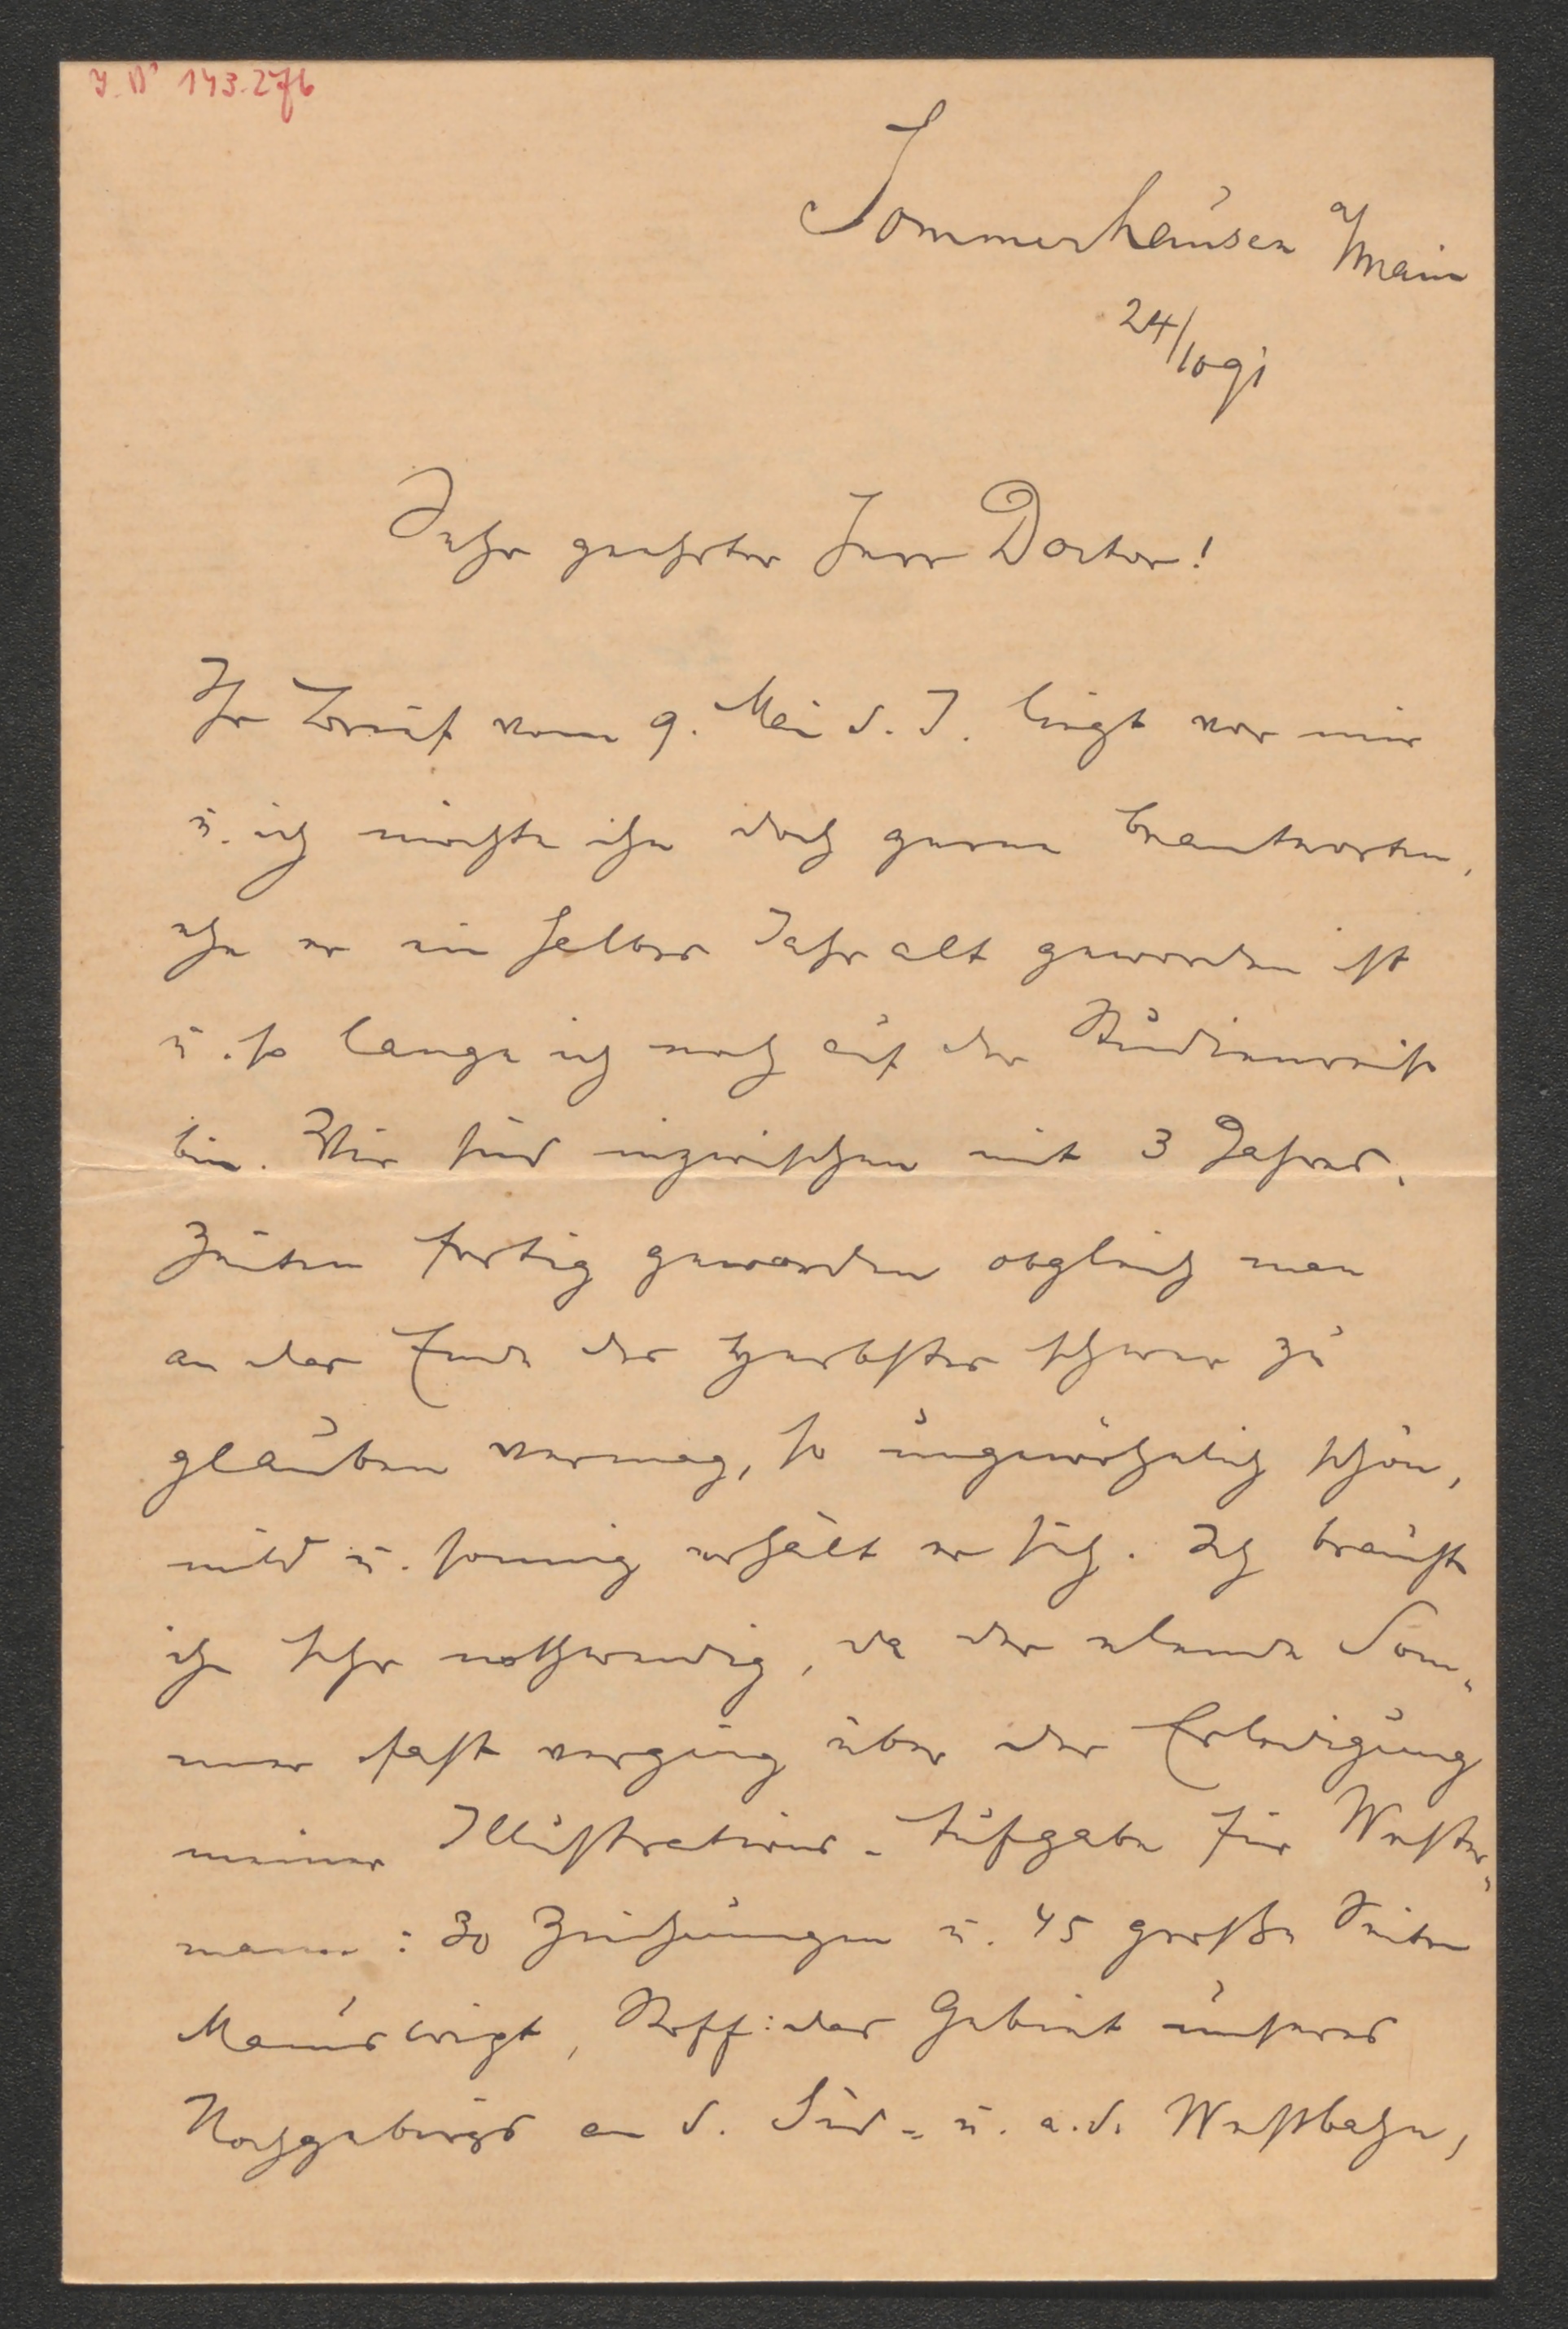 J. N. 143.276
Sommerhausen a/Main
24/10 91
Sehr geehrter Herr Doctor!
Ihr Brief vom 9. Mai d. J. liegt vor mir
u. ich möchte ihn doch gerne beantworten,
ehe er ein halbes Jahr alt geworden ist
u. so lange ich noch auf der Studienreise
bin. Wir sind inzwischen mit 3 Jahres-
zeiten fertig geworden obgleich man
an das Ende des Herbstes schwer zu
glauben vermag, so ungewöhnlich schön,
mild u. sonnig erhält er sich. Ich brauchte
ihn sehr nothwendig, da der elende Som-
mer fast verging über der Erledigung
meiner Illustrations-Aufgabe für Wester-
mann: 30 Zeichnungen u. 45 große Seiten
Manuscript, Stoff: das Gebiet unseres
Hochgebirgs an d. Süd- u. a. d. Westbahn,